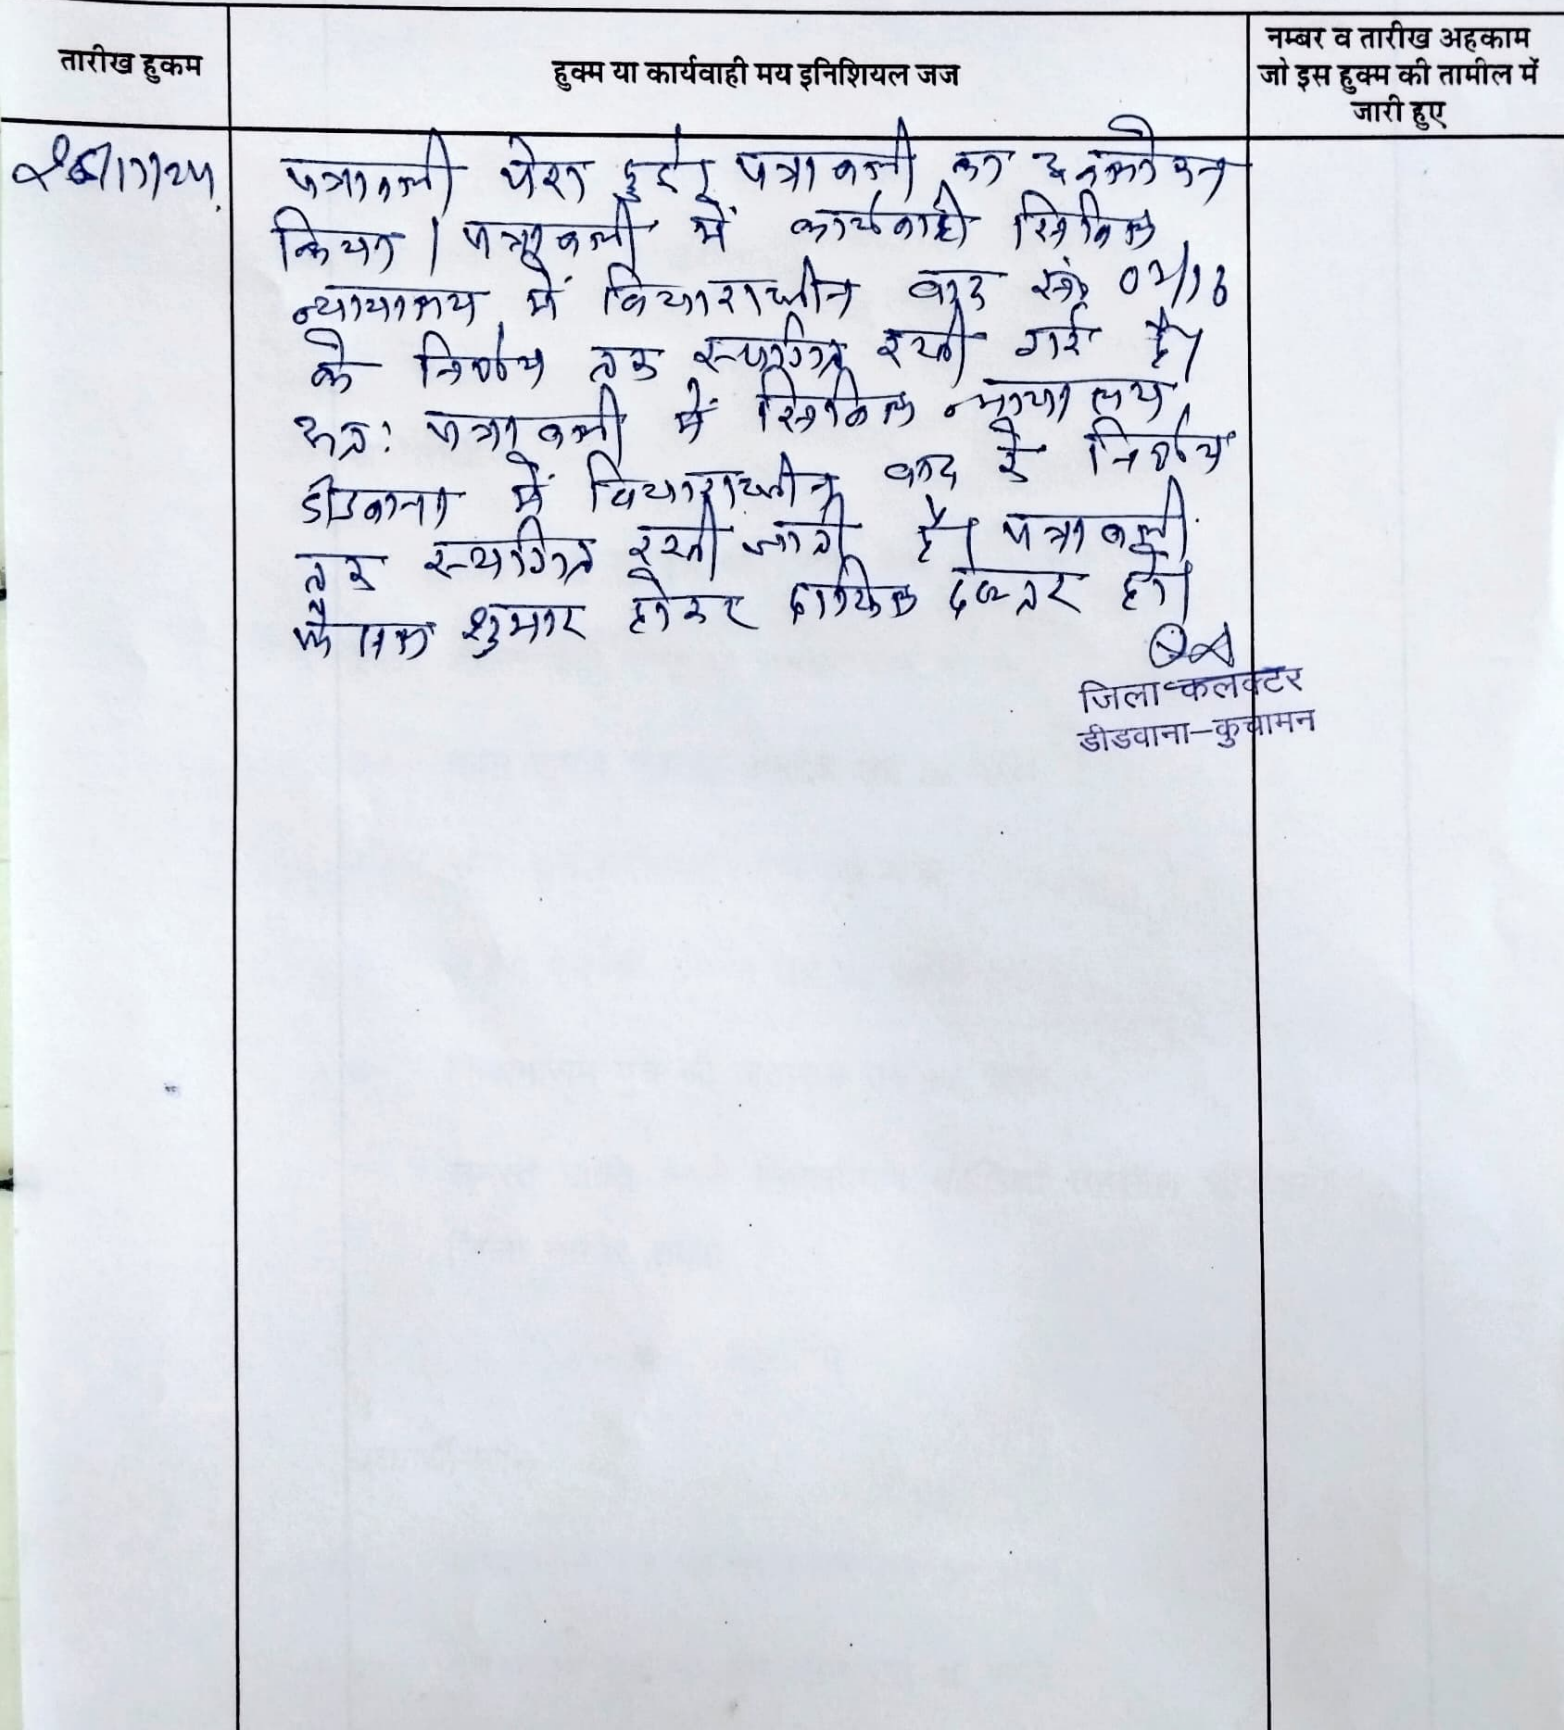 तारीख हुकम
हुक्म या कार्यवाही मय इनिशियल जज
नम्बर व तारीख अहकाम
जो इस हुक्म की तामील में
जारी हुए
पत्रावली पेश हुई। पत्रावली का अवलोकन
किया। पत्रावली में कार्यवाही सिविल
न्यायालय में विचाराधीन वाद सं०
के निर्णय तक स्थगित रखी गई है।
अतः पत्रावली में सिविल न्यायालय
डीडवाना में विचाराधीन वाद के निर्णय
तक स्थगित रखी जाती है। पत्रावली
फैसल शुमार होकर दाखिल दफ्तर हो।
जिला कलक्टर
डीडवाना-कुचामन